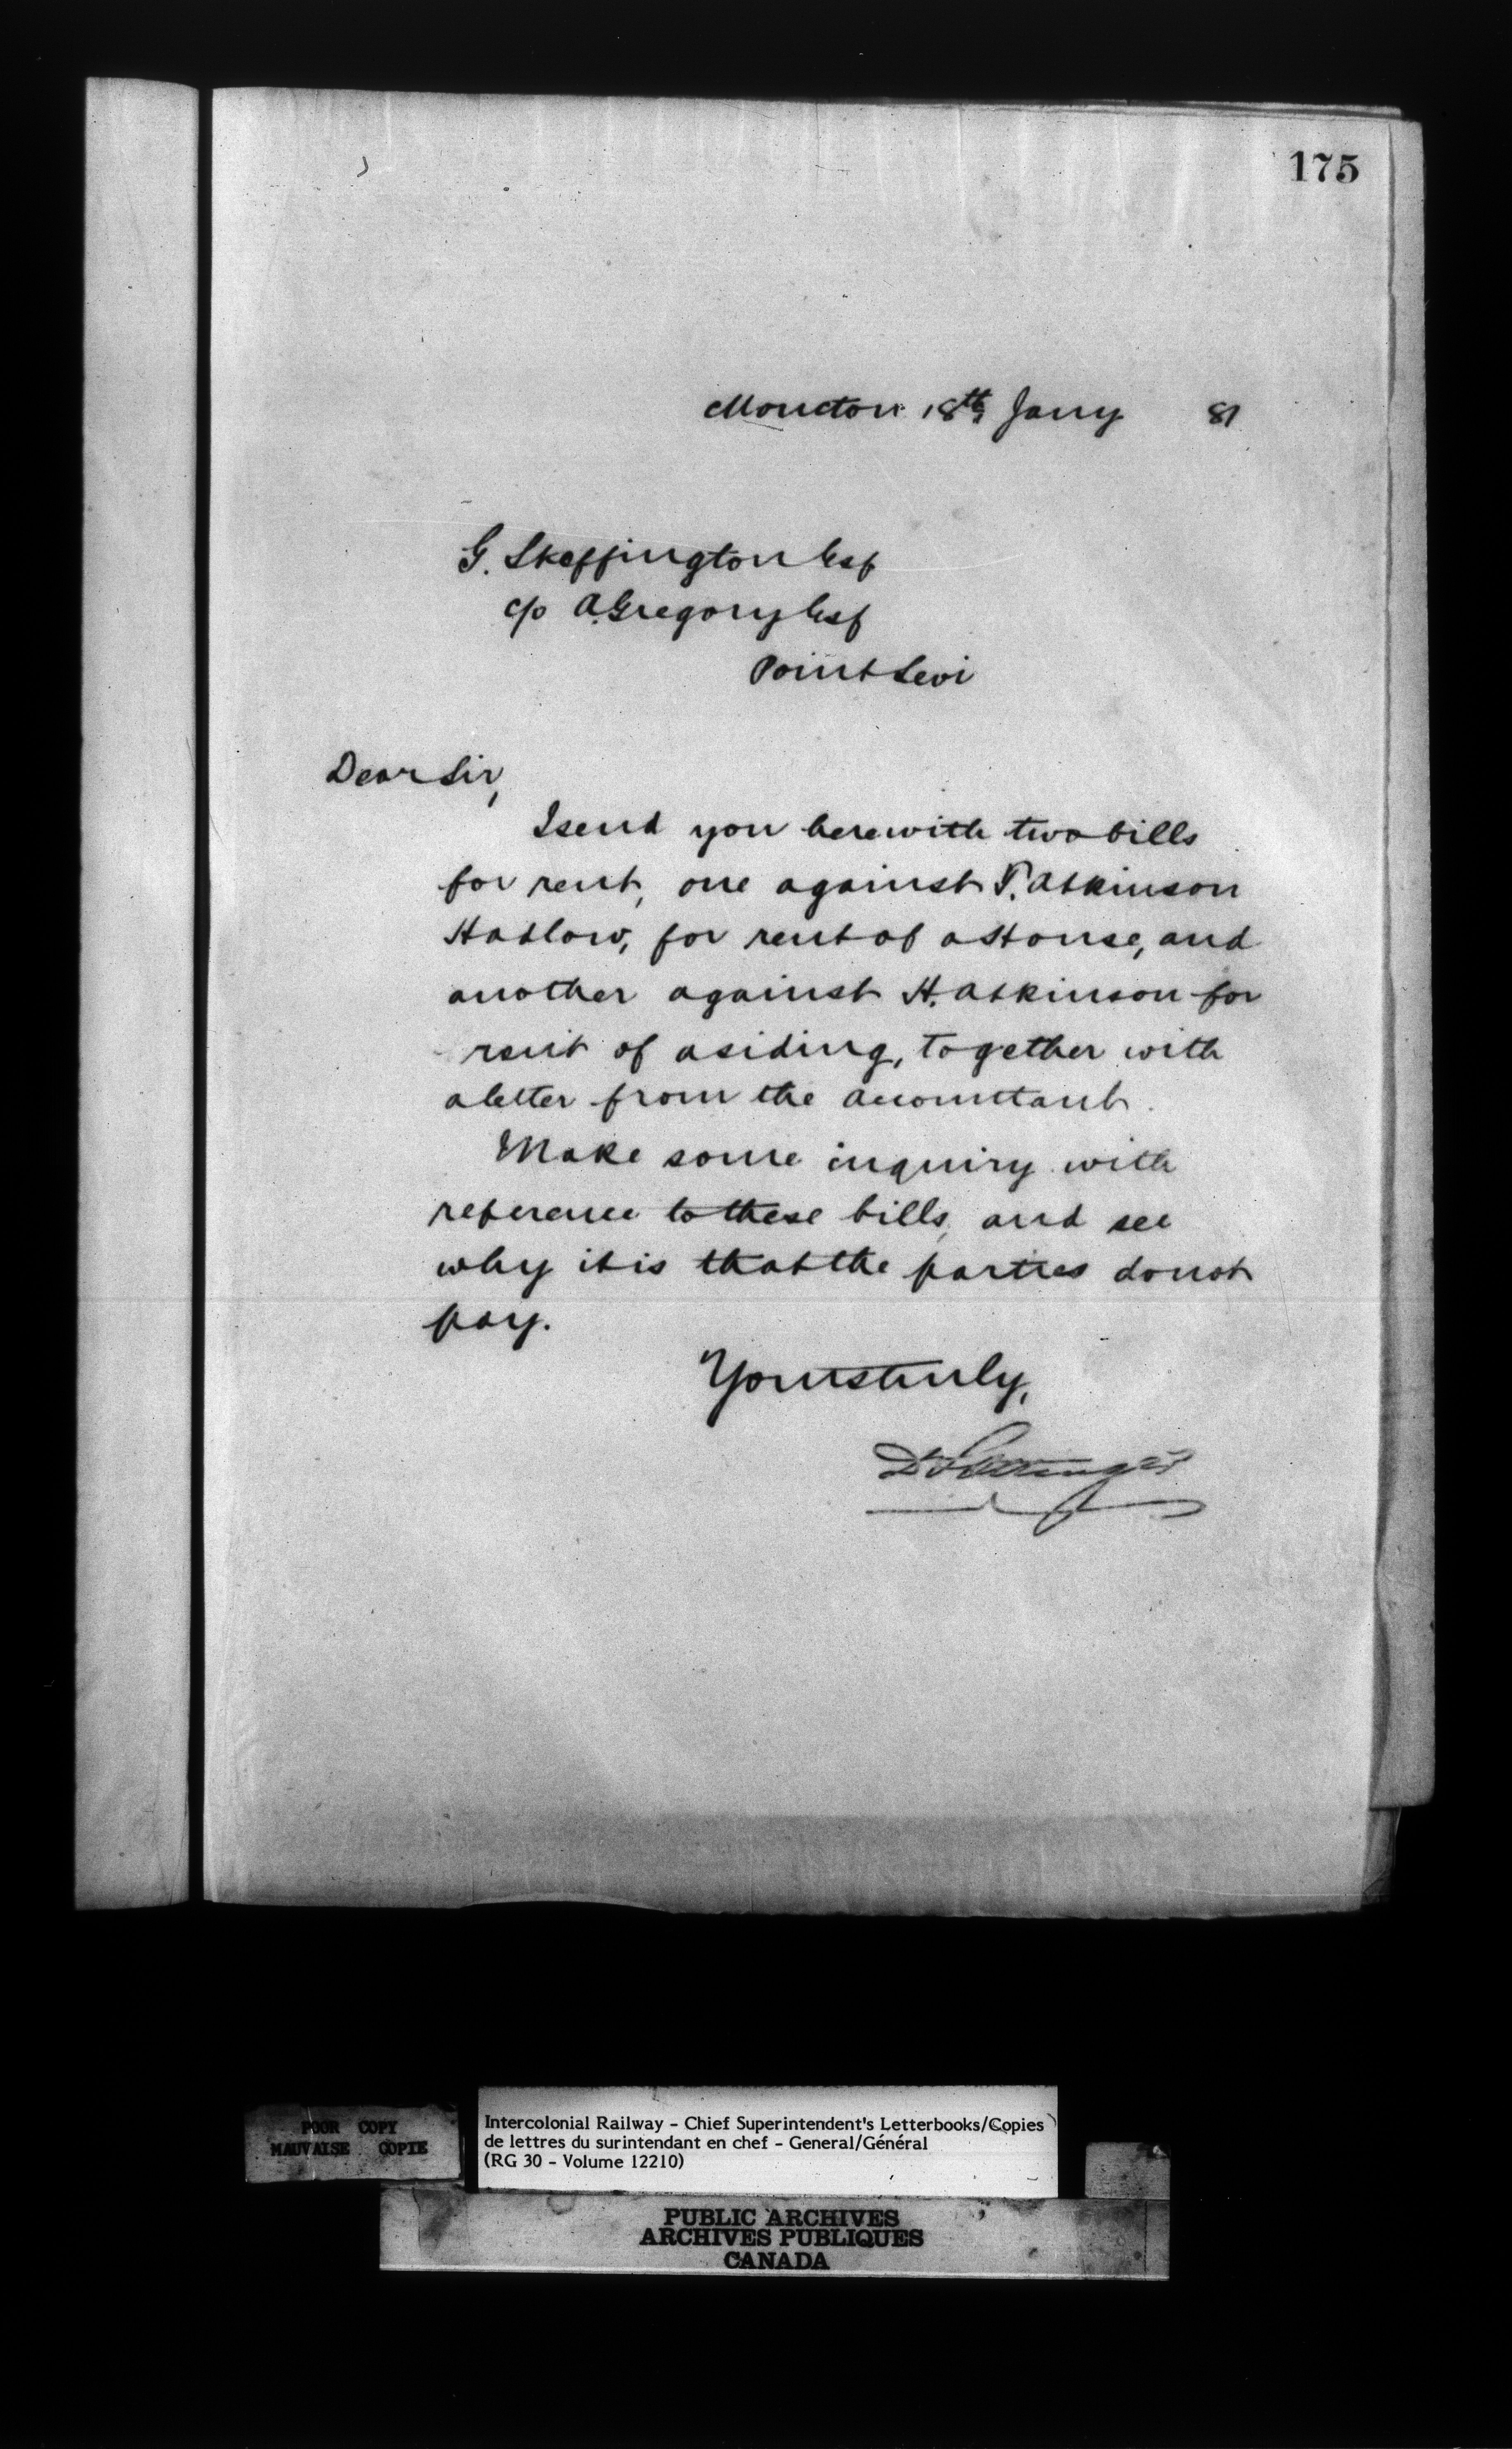 175
Moncton 18th Jany 81
G. Skeffington Esq
c/o A. Gregory Esq
Point Levi
Dear Sir,
I send you herewith two bills
for rent, one against T. Atkinson
Hadlow, for rent of a House, and
another against H. Atkinson for
rent of a siding, together with
a letter from the accountant.
Make some inquiry with
reference to these bills, and see
why it is that the parties do not
pay.
Yours truly,
D. Pottinger
POOR COPY
MAUVAISE COPIE
Intercolonial Railway - Chief Superintendent's Letterbooks/Copies
de lettres du surintendant en chef - General/Général
(RG 30 - Volume 12210)
PUBLIC ARCHIVES
ARCHIVES PUBLIQUES
CANADA